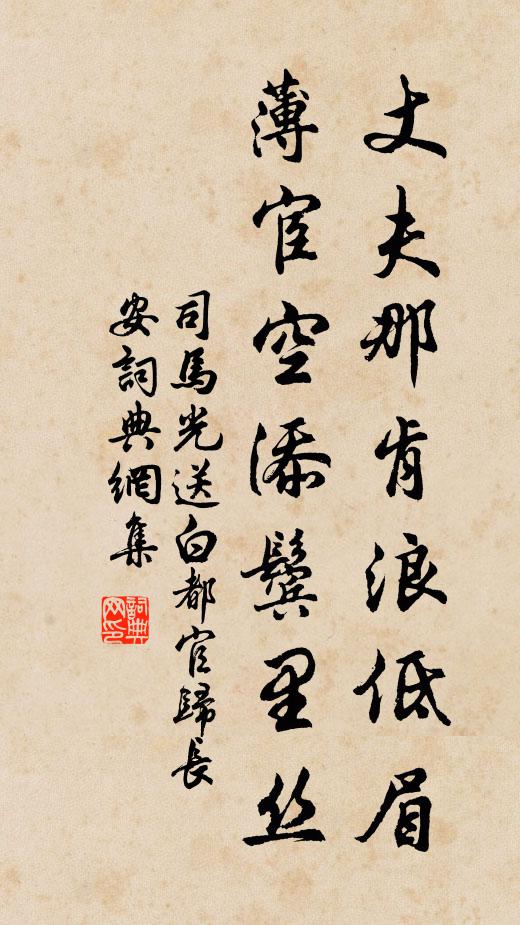 丈夫那肯浪低眉
薄宦空添鬓里丝
司馬光送白都官歸長
安詞典網集
詞典
网印